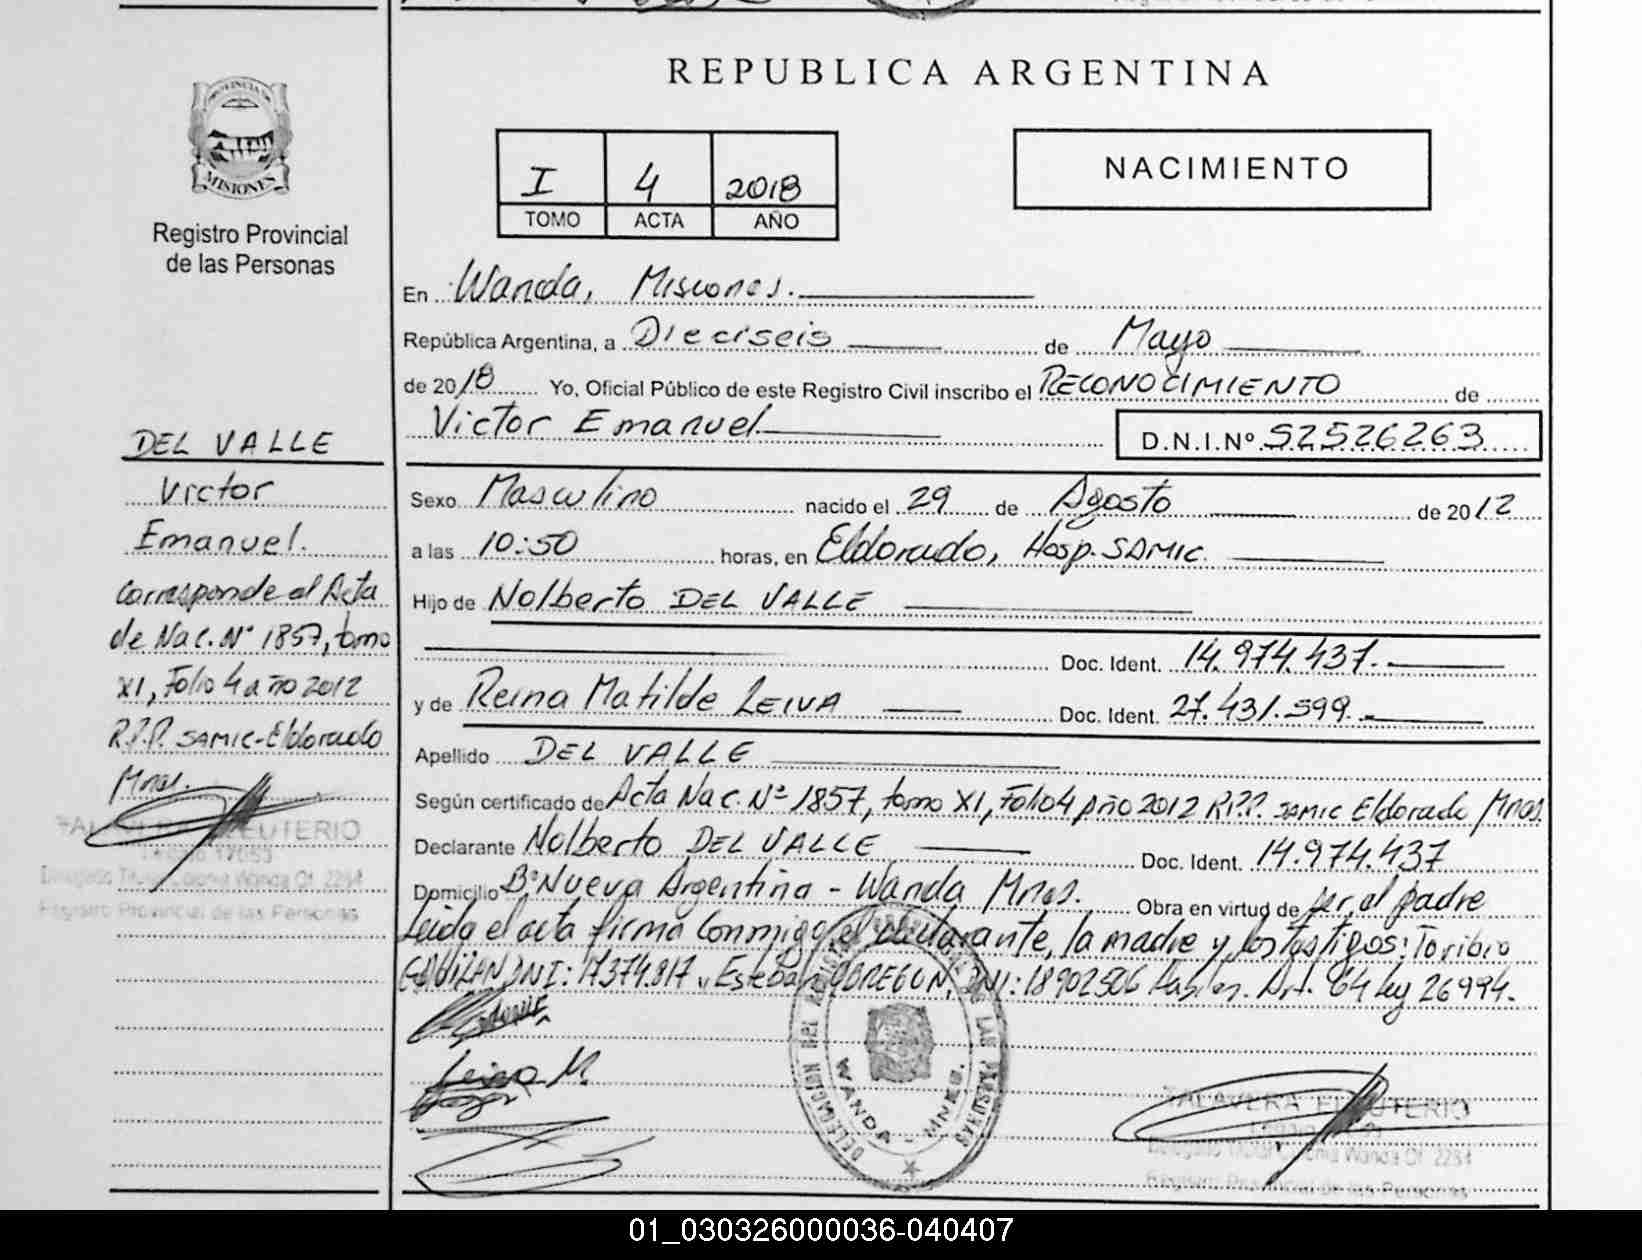 REPUBLICA ARGENTINA
PROVINCIA DE
MISIONES
Registro Provincial
de las Personas
I 4 2018
TOMO ACTA AÑO
NACIMIENTO
DEL VALLE
Victor
Emanuel.
Corresponde al Acta
de Nac. Nº 1857, tomo
XI, Folio 4 año 2012
R.P.P. SAMIC-Eldorado
Mnes.
TALAVERA ELEUTERIO
Legajo 17053
Delegado Titular Colonia Wanda Of. 2284
Registro Provincial de las Personas
En Wanda, Misiones.
República Argentina, a Dieciseis de Mayo
de 2018 Yo, Oficial Público de este Registro Civil inscribo el RECONOCIMIENTO de
Victor Emanuel D.N.I.Nº 52526263
Sexo Masculino nacido el 29 de Agosto de 2012
a las 10:50 horas, en Eldorado, Hosp. SAMIC.
Hijo de Nolberto DEL VALLE
Doc. Ident. 14.974.437.
y de Reina Matilde LEIVA Doc. Ident. 27.431.599.
Apellido DEL VALLE
Según certificado de Acta Nac. Nº 1857, tomo XI, Folio 4 año 2012 R.P.P. SAMIC Eldorado Mnes.
Declarante Nolberto DEL VALLE Doc. Ident. 14.974.437
Domicilio Bº Nueva Argentina - Wanda Mnes. Obra en virtud de ser el padre
Leida el acta firma conmigo, el declarante, la madre y los testigos: Toribio
DNI: 17374.817 y Esteban OBREGON, DNI: 18902506 Art. 64 Ley 26994.
Leiva M.
DELEGACION DEL REGISTRO PROVINCIAL DE LAS PERSONAS
WANDA - MNES.
TALAVERA ELEUTERIO
Legajo 17053
Delegado Titular Colonia Wanda Of. 2284
Registro Provincial de las Personas
01_030326000036-040407